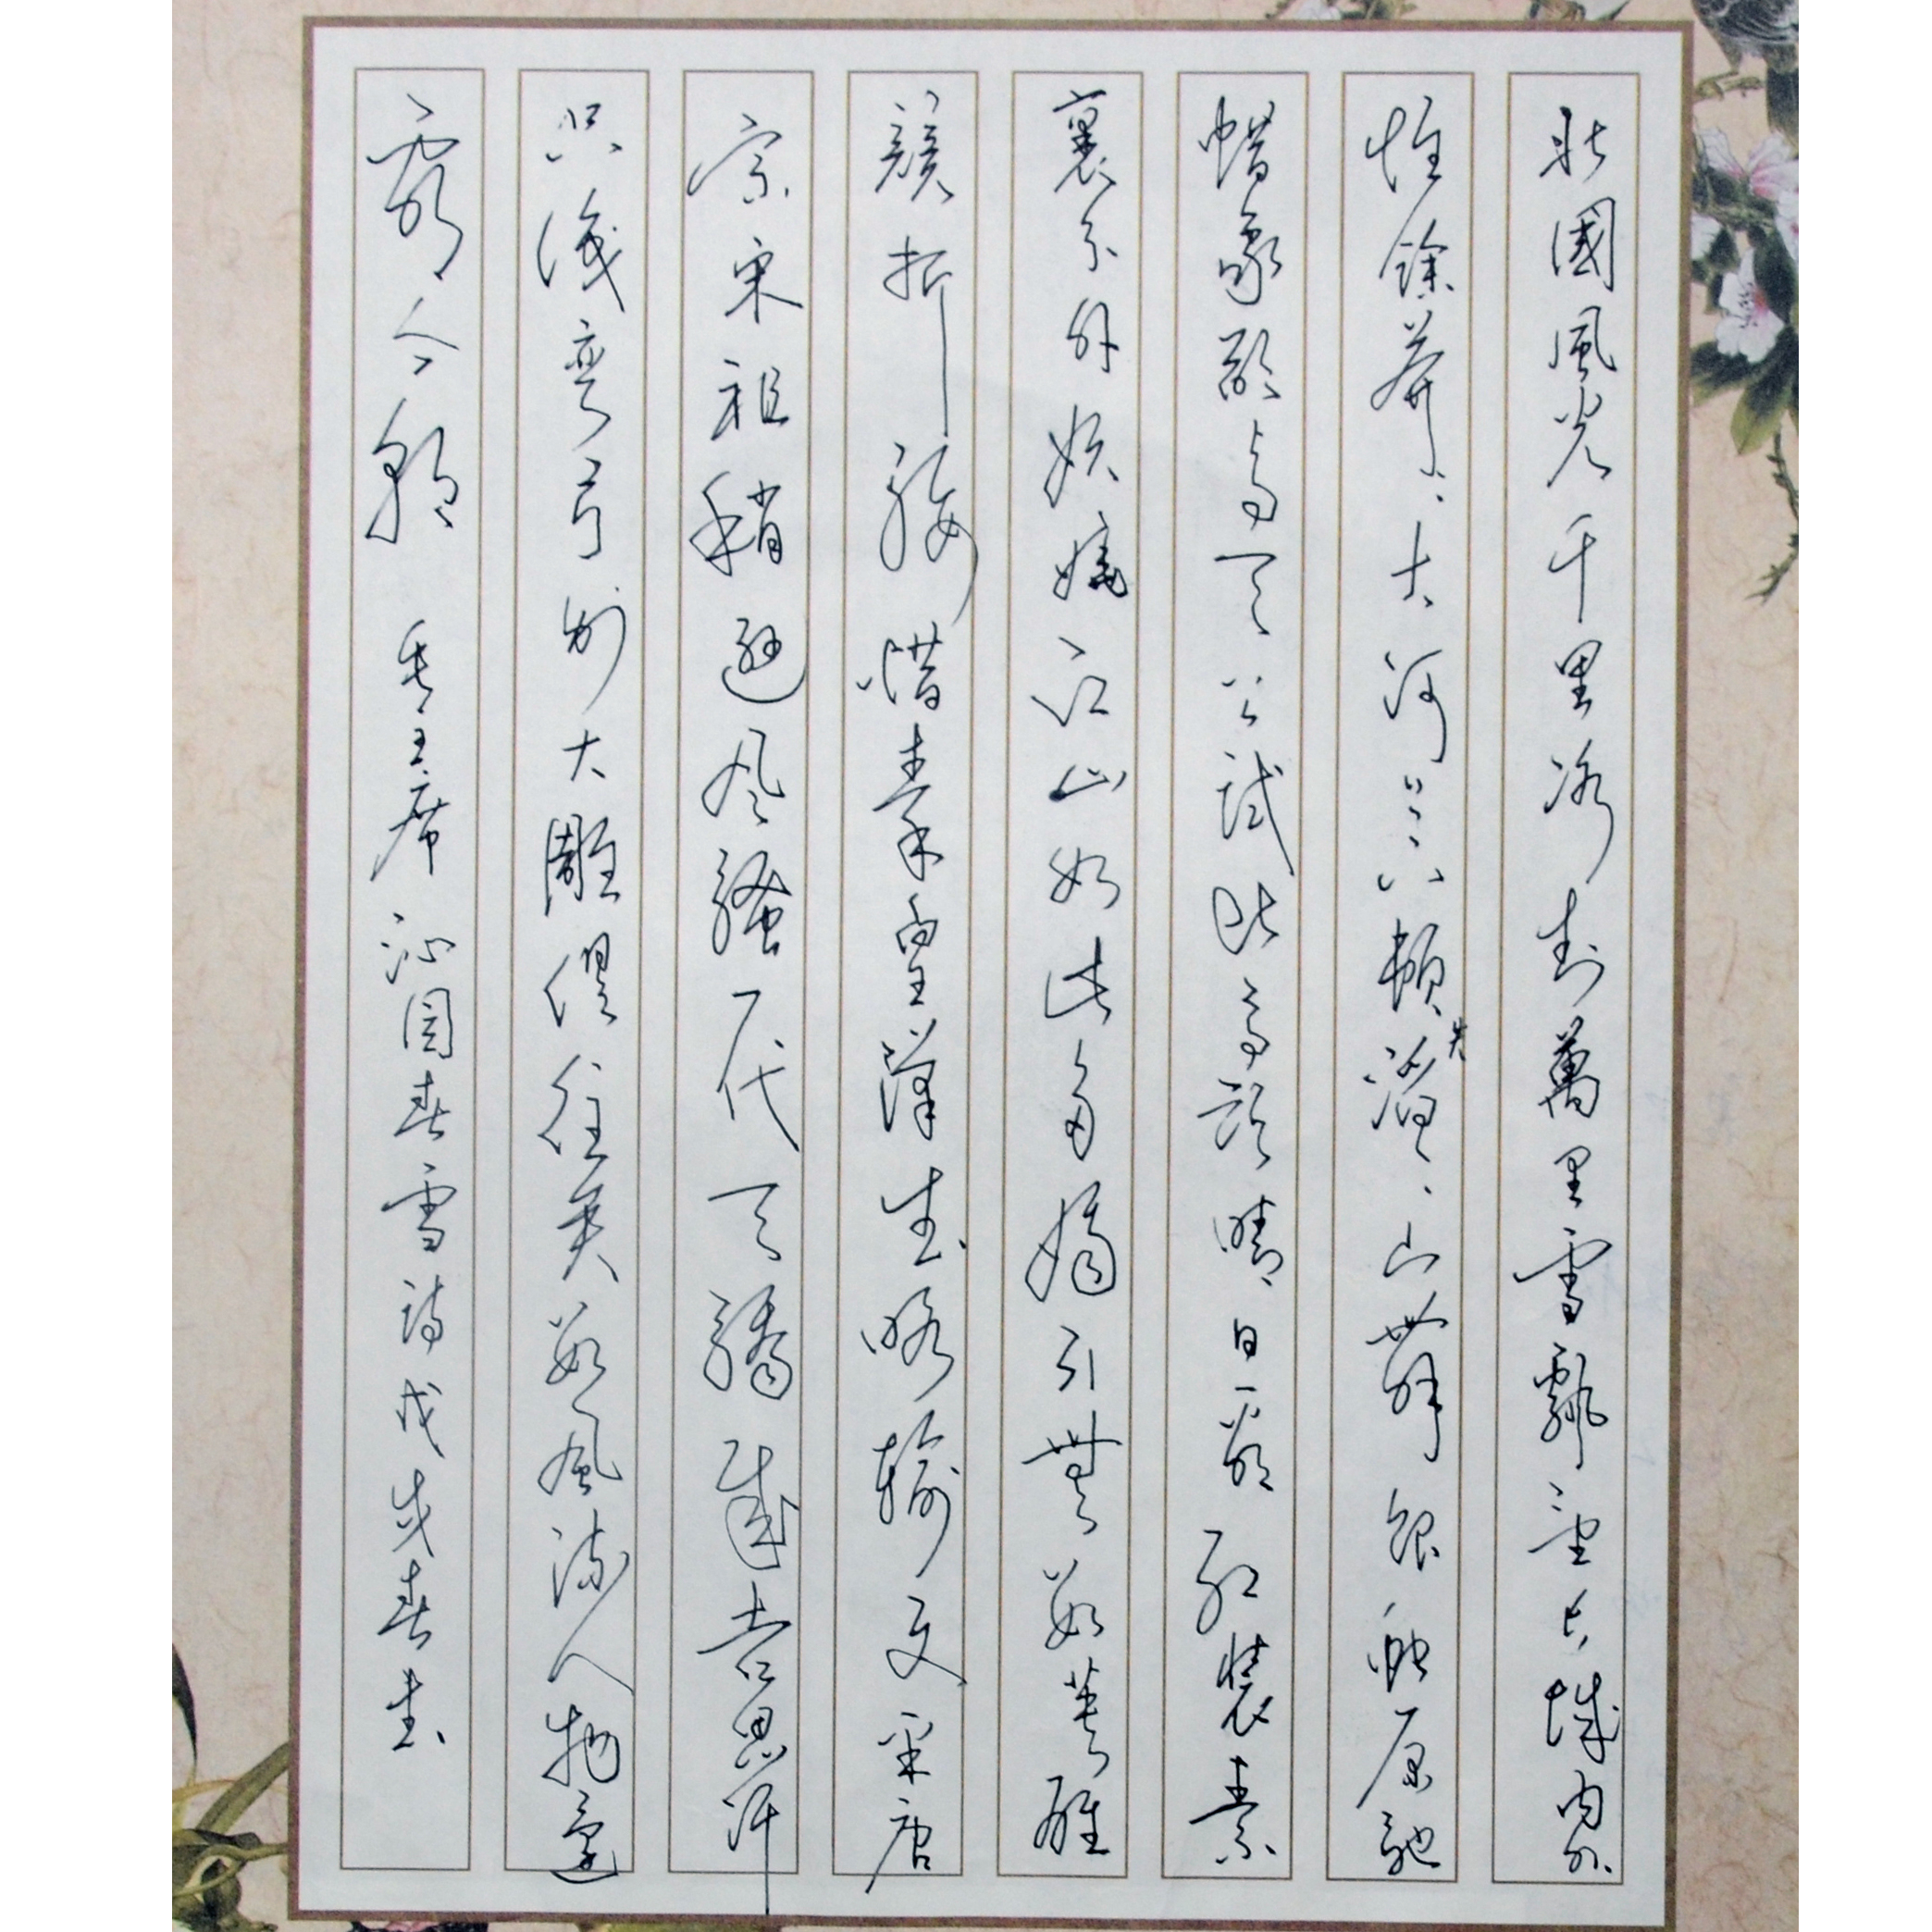 北國風光千里冰封萬里雪飄望長城內外
惟餘莽〻大河上下頓失滔〻山舞銀蛇原馳
蜡象欲与天公試比高須晴日看紅裝素
裹分外妖嬈江山如此多嬌引無數英雄
競折腰惜秦皇漢武略輸文采唐
宗宋祖稍遜风騷一代天驕成吉思汗
只識彎弓射大雕俱往矣數風流人物還
看今朝 毛主席沁園春雪詩戊戌春書